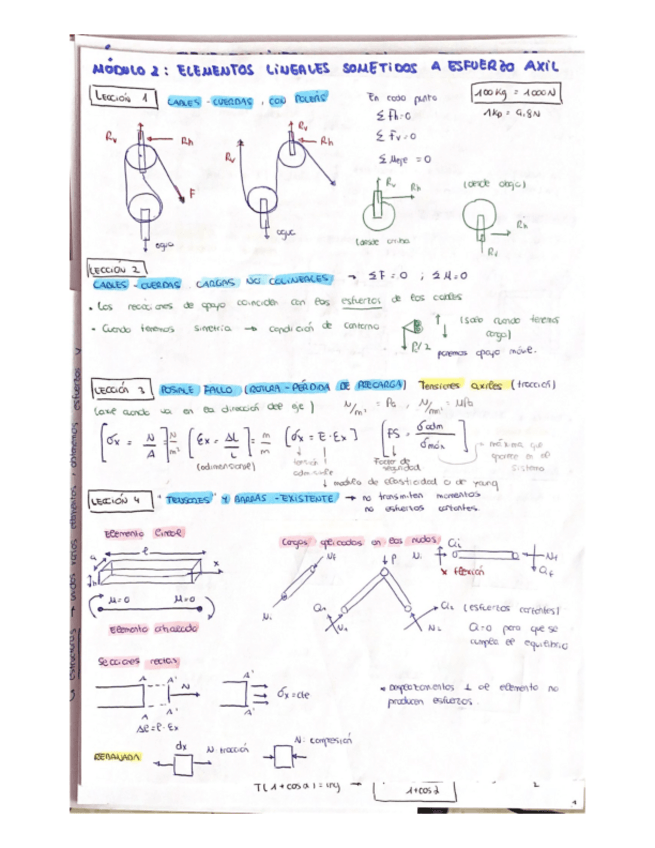 MÓDULO 2: ELEMENTOS LINEALES SOMETIDOS A ESFUERZO AXIL
LECCIÓN 1 CABLES - CUERDAS, CON POLEAS
En cada punto
ΣFh=0
ΣFv=0
ΣMeje = 0
100 kg = 1000N
1kp = 9,8N
Rv Rh F
Rv Rv Rh
agua
Rv Rh
(desde arriba
(desde abajo)
Rh
Rv
LECCIÓN 2
CABLES - CUERDAS CARGAS NO COLINEALES → ΣF=0 ; ΣM=0
• Las reacciones de apoyo coinciden con los esfuerzos de los cables
• Cuando tenemos simetría → condición de contorno
↑↓ (solo cuando tenemos carga)
P/2 ponemos apoyo móvil.
LECCIÓN 3 POSIBLE FALLO (ROTURA - PÉRDIDA DE PRECARGA) Tensiones axiles (tracción)
(axil cuando va en la dirección del eje) N/m² = Pa, N/mm² = MPa
[σx = N/A] = N/m² [εx = ΔL/L] = m/m [σx = E·εx] [FS = σadm/σmáx]
(adimensional)
tensión admisible
Factor de seguridad
máxima que aparece en el sistema
↓ modulo de elasticidad o de young
LECCIÓN 4 "TENSORES" Y BARRAS - EXISTENTE → no transmiten momentos
no esfuerzos cortantes.
Elemento lineal
a l x h
M=0 M=0
Elemento alineado
Cargas aplicadas en los nudos
Nf Ni P
N1 N2
Ni Qi Nf Qf
x flexión
(esfuerzos cortantes)
Q=0 para que se
cumpla el equilibrio
Secciones rectas
A A' N A A'
A' σx = cte
Δl = l·εx
* comportamientos ⊥ al elemento no
producen esfuerzos.
REBANADA dx N: tracción N: compresión
T(1+cosα)=mg → 1+cos2
2